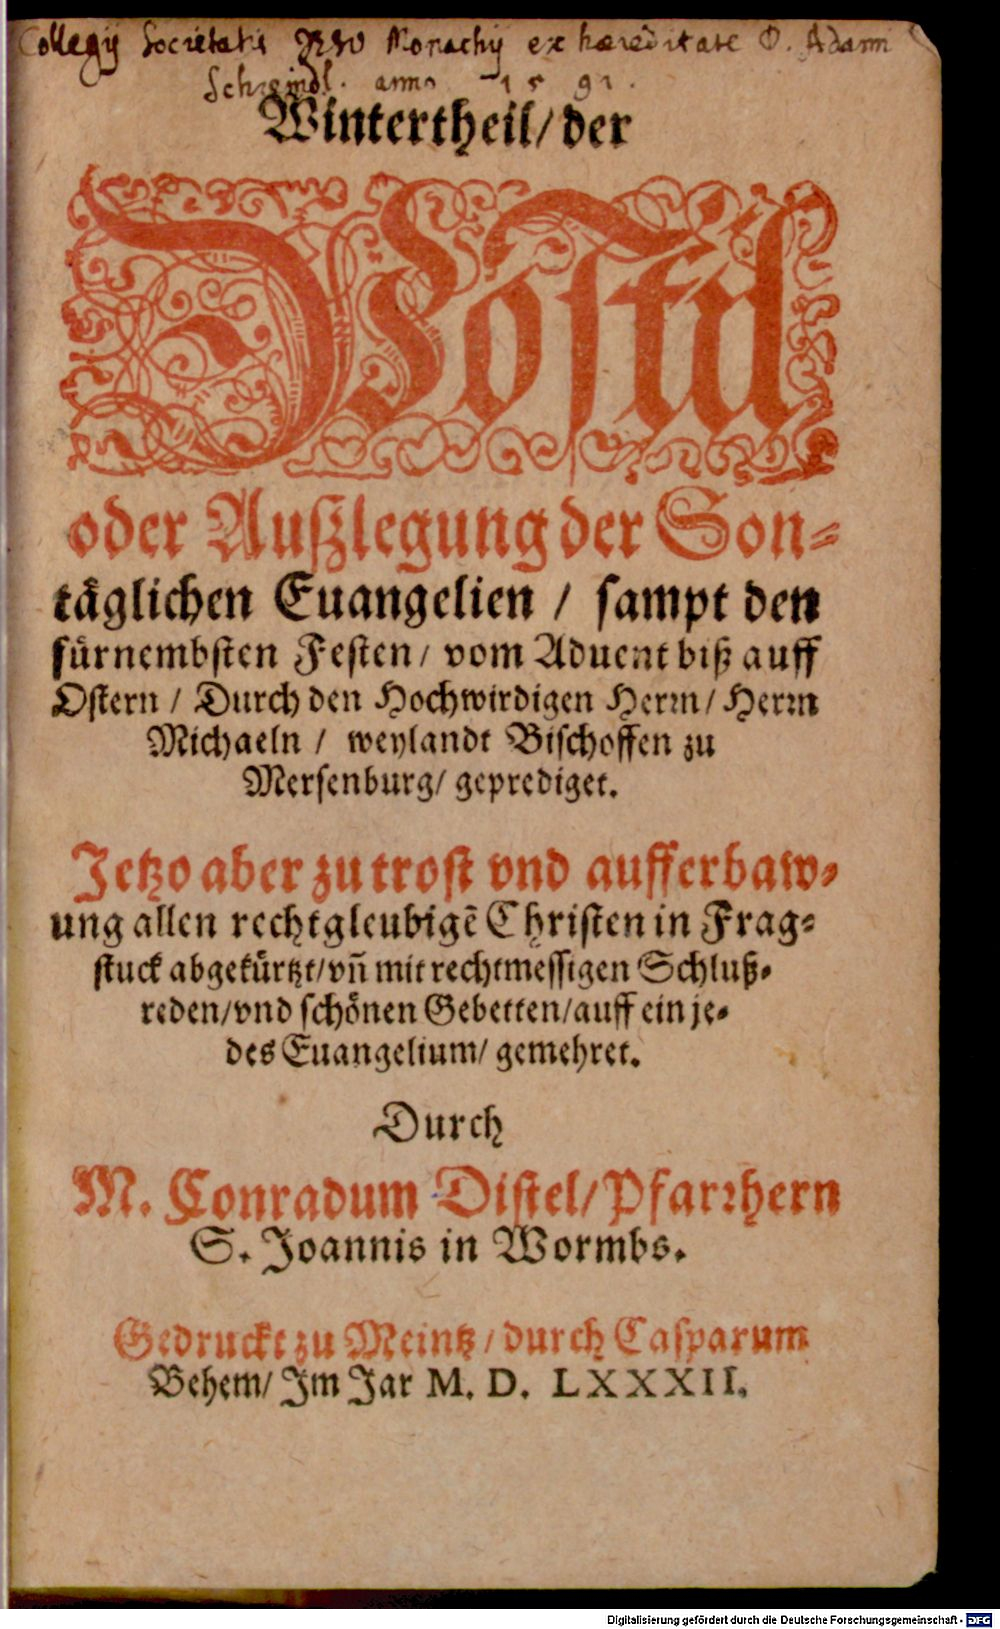 Collegij Societatis IESV Monachij ex hæreditate D. Adami
Schreindl. anno 1591.
Wintertheil/ der
Postil
oder Außlegung der Son-
täglichen Euangelien / sampt den
fürnembsten Festen/ vom Aduent biß auff
Ostern / Durch den Hochwirdigen Herrn/ Herrn
Michaeln / weylandt Bischoffen zu
Mersenburg/ geprediget.
Jetzo aber zu trost vnd aufferbaw-
ung allen rechtgleubigē Christen in Frag-
stuck abgekürtzt/ vñ mit rechtmessigen Schluß-
reden/ vnd schönen Gebetten/ auff ein je-
des Euangelium/ gemehret.
Durch
M. Conradum Distel/ Pfarrhern
S. Joannis in Wormbs.
Gedruckt zu Meintz / durch Casparum
Behem/ Im Jar M. D. LXXXII.
Digitalisierung gefördert durch die Deutsche Forschungsgemeinschaft - DFG